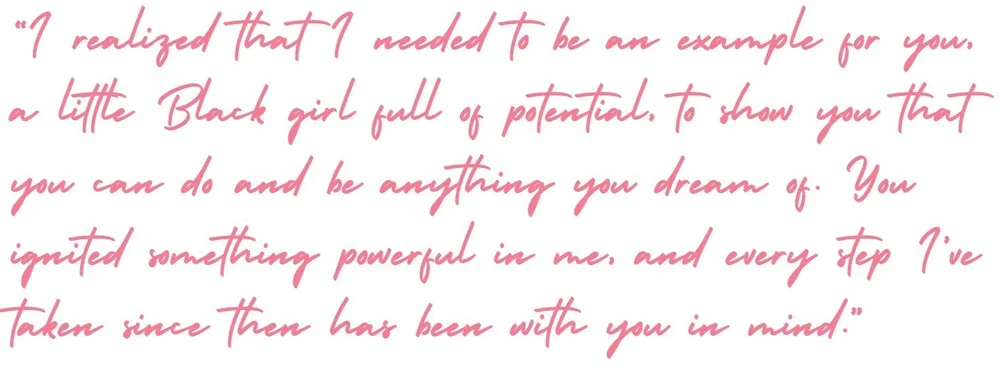 “I realized that I needed to be an example for you,
a little Black girl full of potential, to show you that
you can do and be anything you dream of. You
ignited something powerful in me, and every step I've
taken since then has been with you in mind.”